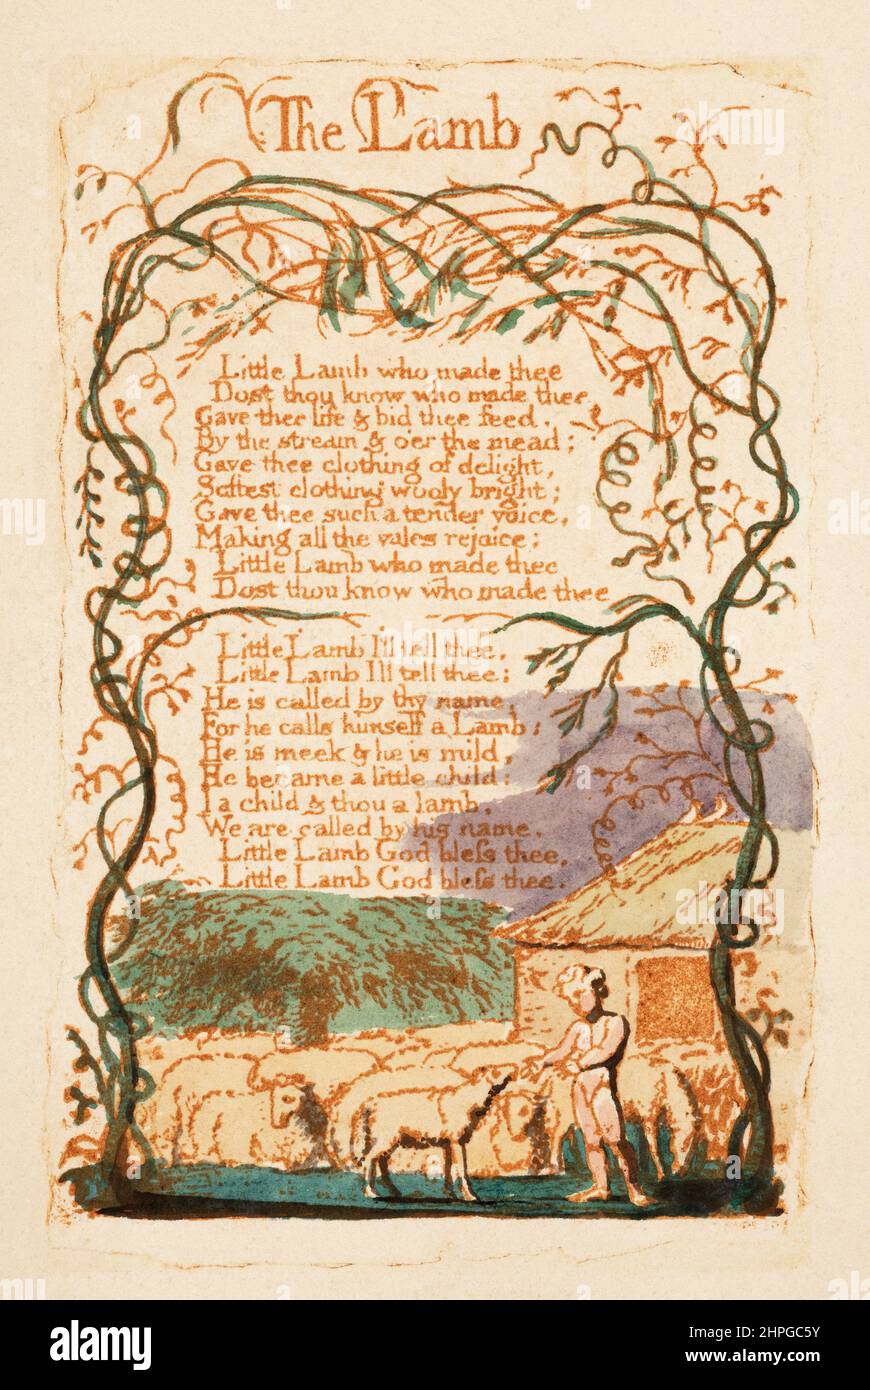 The Lamb
Little Lamb who made thee
Dost thou know who made thee
Gave thee life & bid thee feed.
By the stream & o'er the mead;
Gave thee clothing of delight,
Softest clothing wooly bright;
Gave thee such a tender voice,
Making all the vales rejoice;
Little Lamb who made thee
Dost thou know who made thee
Little Lamb I'll tell thee,
Little Lamb I'll tell thee;
He is called by thy name,
For he calls himself a Lamb:
He is meek & he is mild,
He became a little child:
I a child & thou a lamb,
We are called by his name.
Little Lamb God bleſs thee,
Little Lamb God bleſs thee.
alamy
Image ID: 2HPGC5Y
www.alamy.com